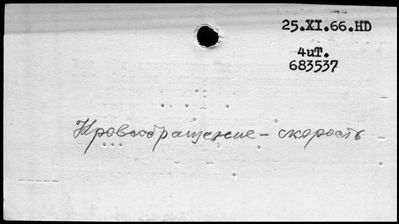 25.XI.66.HD
4иT.
683537
Кровообращение - скорость